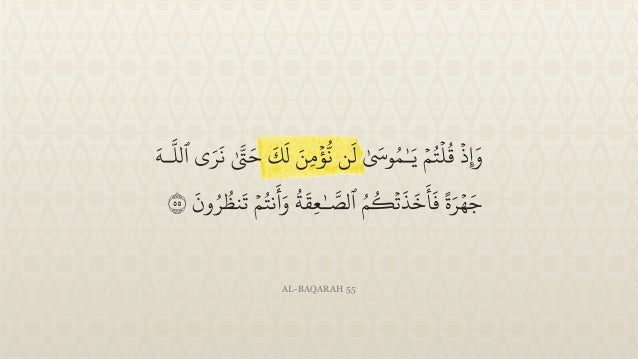 وَإِذۡ قُلۡتُمۡ يَـٰمُوسَىٰ لَن نُّؤۡمِنَ لَكَ حَتَّىٰ نَرَى ٱللَّـهَ
جَهۡرَةً فَأَخَذَتۡكُمُ ٱلصَّـٰعِقَةُ وَأَنتُمۡ تَنظُرُونَ ۝٥٥
AL-BAQARAH 55